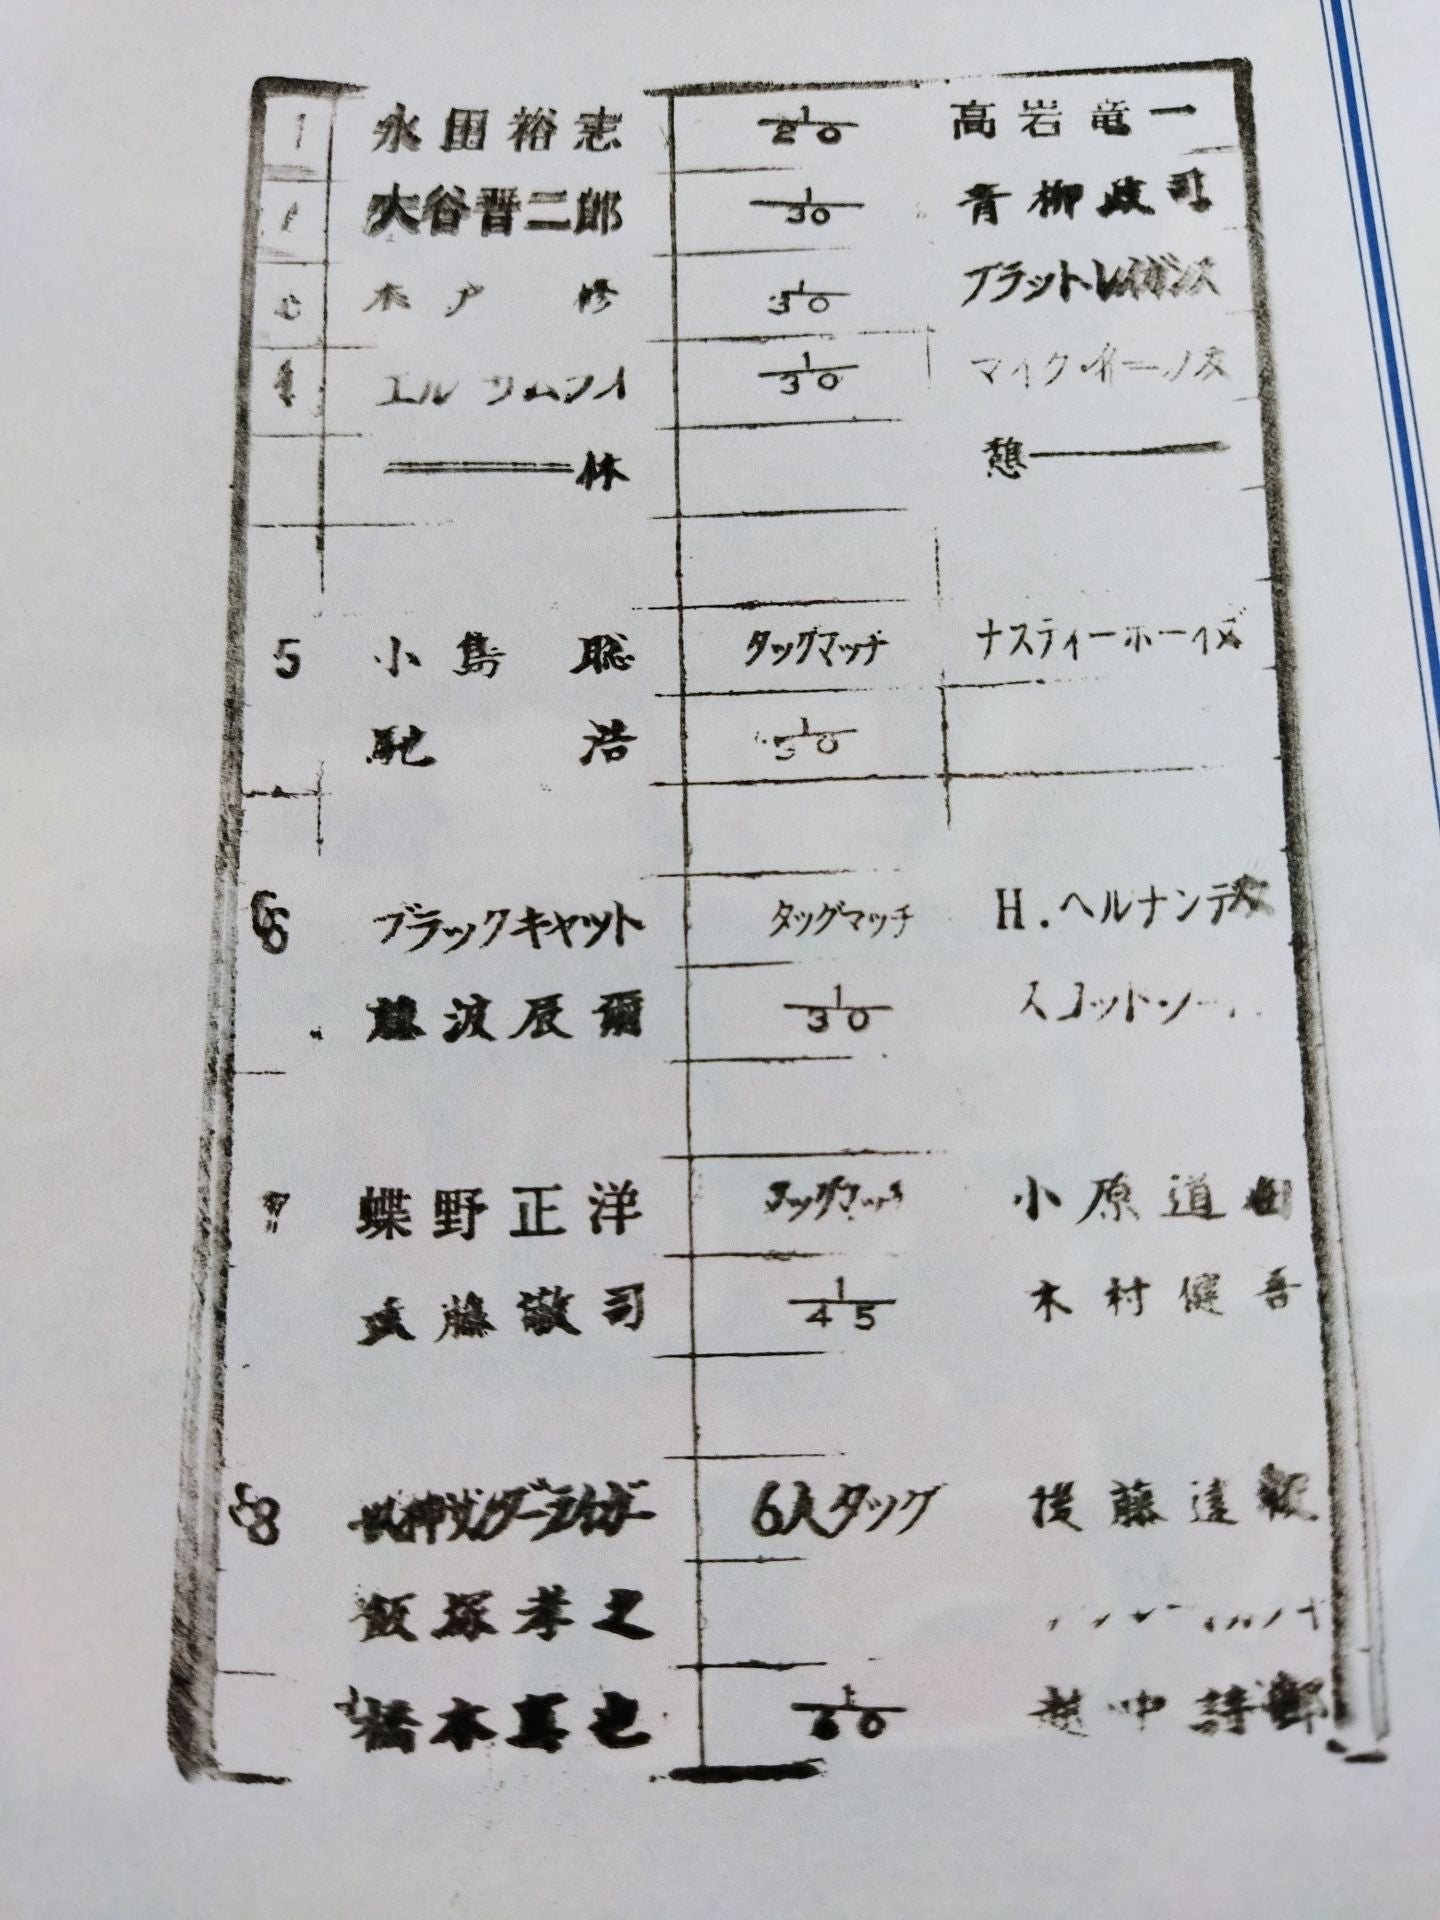 1 永田裕志 1/20 高岩竜一
大谷晋二郎 1/30 青柳政司
木戸 修 1/30 ブラットレイガンス
4 エル サムライ 1/30 マイク・イーノス
休 憩
5 小島 聡 タッグマッチ ナスティーボーイズ
馳 浩 1/30
6 ブラックキャット タッグマッチ H.ヘルナンデス
藤波辰爾 1/30 スコットノートン
7 蝶野正洋 タッグマッチ 小原道由
武藤敬司 1/45 木村健吾
8 獣神サンダーライガー 6人タッグ 後藤達俊
飯塚孝之
橋本真也 1/60 越中詩郎